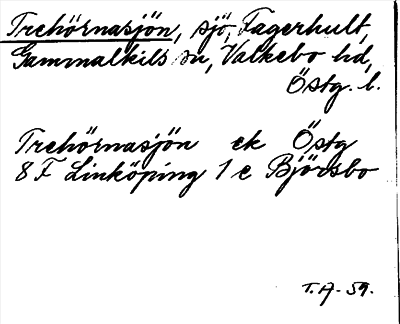 Trehörnasjön, sjö, Fagerhult,
Gammalkils sn, Valkebo hd,
Östg. l.
Trehörnasjön ek Östg
8 F Linköping 1 e Björsbo
T.A-59.